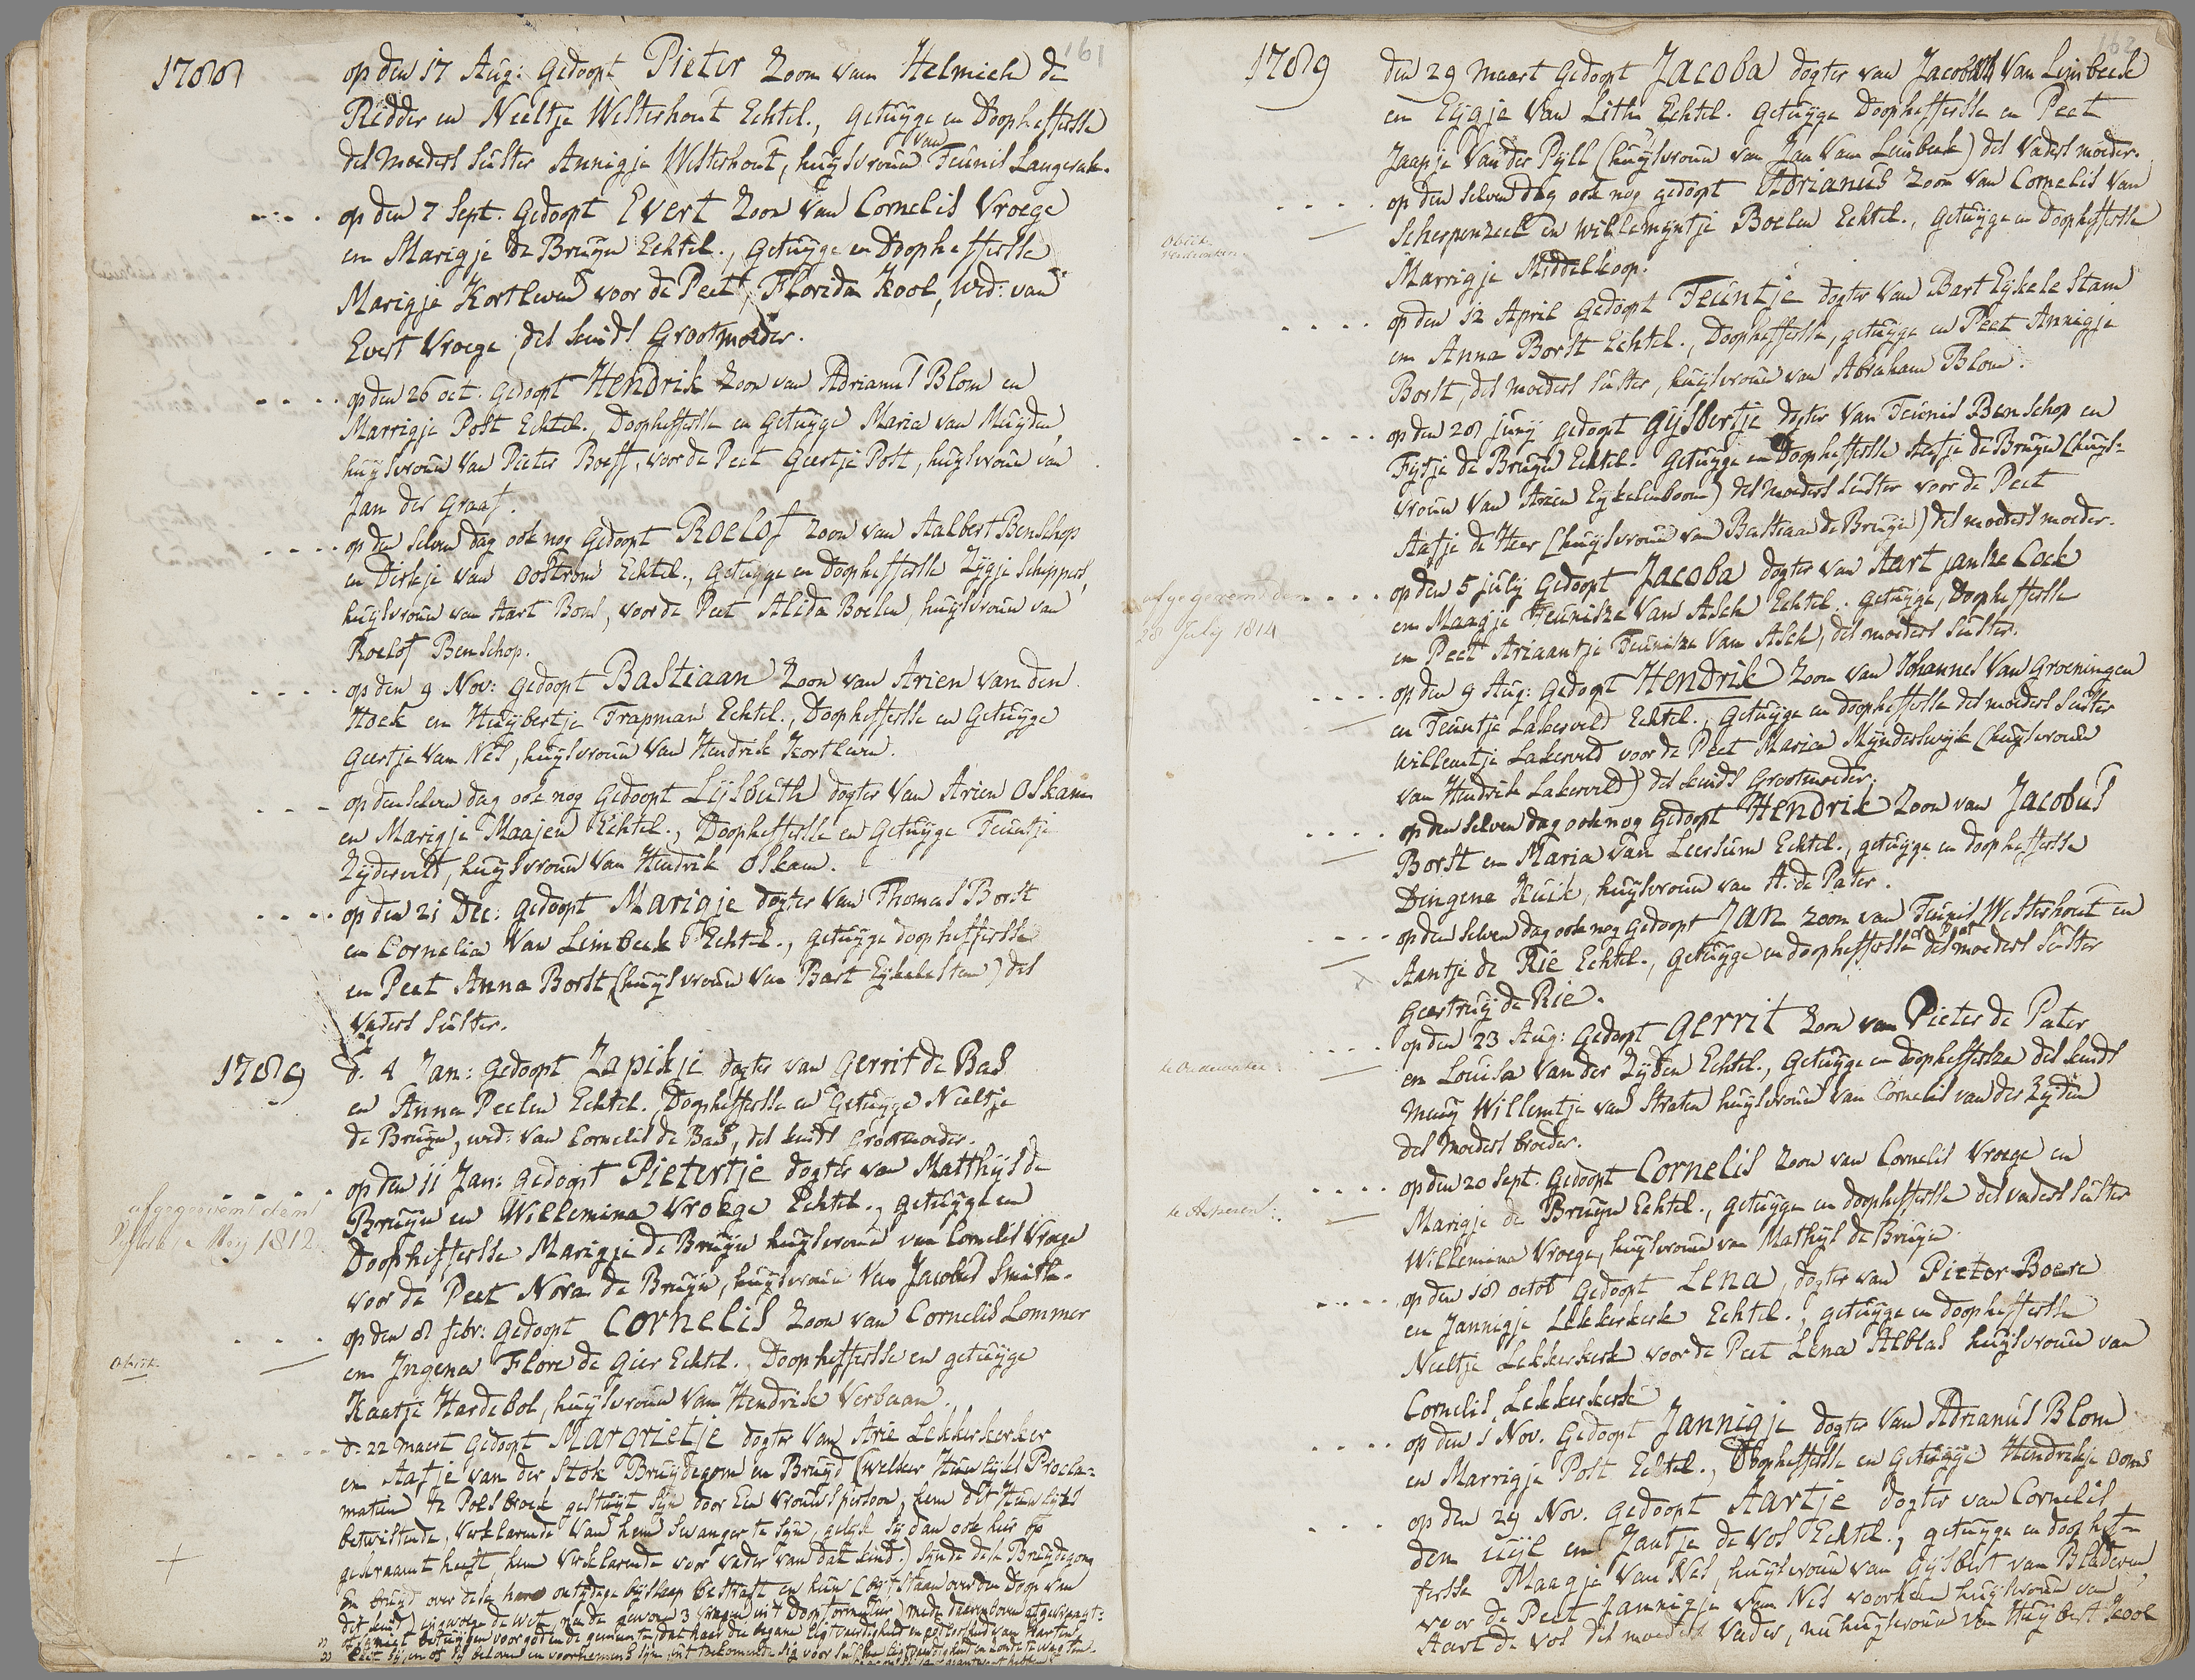 161
1788 op den 17 Aug: gedoopt Pieter Zoon van Helmich de
Ridder en Neeltje Westerhout Echtel., getuyge en Doophefferse
des moeders suster Annigje Westerhout, huysvrouw van Teunis Langerak.
op den 7 Sept. gedoopt Evert Zoon van Cornelis Vroege
en Marigje de Bruyn Echtel., getuyge en Doophefferse
Marigje Kortleven voor de Peet, Floreda Kool, wed: van
Evert Vroege, des kinds Grootmoeder.
op den 26 oct. gedoopt Hendrik Zoon van Adrianus Blom en
Marrigje Post Echtel., Doophefferse en Getuyge Maria van Muyden,
huysvrouw van Pieter Boeff, voor de Peet Geertje Post, huysvrouw van
Jan der Graaf.
op den selven dag ook nog gedoopt Roelof Zoon van Aalbert Benschop
en Dirkje van Oostrom Echtel., getuyge en Doophefferse Zijgje Schippers,
huysvrouw van Aart Bons, voor de Peet Alida Boelen, huysvrouw van
Roelof Benschop.
op den 9 Nov: gedoopt Bastiaan Zoon van Arien van den
Hoek en Huybertje Trapman Echtel., Doophefferse en Getuyge
Geertje van Nes, huysvrouw van Hendrik Kortleven.
op den selven dag ook nog gedoopt Lijsbeth dogter van Arien Oskam
en Marigje Maajen Echtel., Doophefferse en Getuyge Teuntje
Zijderveld, huysvrouw van Hendrik Oskam.
op den 21 Dec: gedoopt Marigje dogter van Thomas Borst
en Cornelia van Limbeek Echtel., getuyge doophefferse
en Peet Anna Borst (huysvrouw van Bart Eykelestam) des
vaders suster.
1789 d. 4 Jan: gedoopt Zapikje dogter van Gerrit de Bas
en Anna Peelen Echtel. Doophefferse en Getuyge Neeltje
de Bruyn, wed: van Cornelis de Bas, des kinds Grootmoeder.
op den 11 Jan: gedoopt Pietertje dogter van Matthijs de
afgegeeven den
Bruyn en Willemina Vroege Echtel., getuyge en
Mey 1812
Doophefferse Marigje de Bruyn huysvrouw van Cornelis Vroege
voor de Peet Nora de Bruyn, huysvrouw van Jacobus Smith.
op den 8 febr: gedoopt Cornelis Zoon van Cornelis Lommer
en Ingena Flore de Gier Echtel. Doophefferse en getuyge
Kaatje Hardebol, huysvrouw van Hendrik Verbaan.
d. 22 maert gedoopt Margrietje dogter van Arie Lekkerkerker
en Aafje van der Stok Bruydegom en Bruyd (welker Huwelijks Procla-
matien te Polsbroek gestuyt sijn door een vrouwspersoon, hem dit Huwelijk
betwistende, verklarende van hem swanger te sijn, gelijk sij dan ook hier op
gekraamt heeft, hem verklarende voor vader van dat kind.) sijnde dese Bruydegom
en bruyd over dese hare ontydige byslaap bestraft en hun (bij 't staan over den Doop van
dit kind) ingevolge de wet na de gewone 3 vragen in 't Doopformulier) mede daerenboven afgevraagt:
162
1789 den 29 maart gedoopt Jacoba dogter van Jacobus van Limbeek
en Eijgje van Lith Echtel. getuyge Doophefferse en Peet
Jaapje van der Pyll (huysvrouw van Jan van Limbeek) des vaders moeder.
op den selven dag ook nog gedoopt Adrianus Zoon van Cornelis van
Scherpenzeel en Willemyntje Boelen Echtel., getuyge en doophefferse
Marrigje Middelkoop.
op den 12 April gedoopt Teuntje dogter van Bart Eykelestam
en Anna Borst Echtel., Doophefferse, getuyge en Peet Annigje
Borst, des moeders suster, huysvrouw van Abraham Blom.
op den 28 juny gedoopt Gijsbertje dogter van Teunis Benschop en
Fijtje de Bruyn Echtel. getuyge en Doophefferse Aafje de Bruyn (huys-
vrouw van Arien Eykelenboom) des moeders suster voor de Peet
Aafje de Heer (huysvrouw van Bastiaan de Bruyn) des moeders moeder.
afgegeeven den
op den 5 july gedoopt Jacoba dogter van Aart Janse Cock
28 July 1814
en Maagje Teunisze van Asch Echtel. getuyge, Doophefferse
en Peet Ariaantje Teunisze van Asch, des moeders suster.
op den 9 Aug: gedoopt Hendrik Zoon van Johannes van Groeningen
en Teuntje Lakerveld Echtel., getuyge en doophefferse des moeders suster
Willemtje Lakerveld voor de Peet Maria Mynderswyk (huysvrouw
van Hendrik Lakerveld) des kinds Grootmoeder.
op den selven dag ook nog gedoopt Hendrik Zoon van Jacobus
Borst en Maria van Leersum Echtel., getuyge en doophefferse
Dingena Kuik, huysvrouw van A. de Pater.
op den selven dag ook nog gedoopt Jan zoon van Teunis Westerhout en
Aantje de Rie Echtel., getuyge en doophefferse en Peet des moeders suster
Geertruy de Rie.
op den 23 Aug: gedoopt Gerrit Zoon van Pieter de Pater
en Louisa van der Zijden Echtel., getuyge en doophefferse des kinds
muuy Willemtje van Straten huysvrouw van Cornelis van der Zijden
des moeders broeder.
op den 20 Sept. gedoopt Cornelis Zoon van Cornelis Vroege en
te Asperen
Marigje de Bruyn Echtel., getuyge en doophefferse des vaders suster
Willemina Vroege, huysvrouw van Mathijs de Bruyn.
op den 18 octob gedoopt Lena, dogter van Pieter Boere
en Jannigje Lekkerkerk Echtel., getuyge en doophefferse
Neeltje Lekkerkerk voor de Peet Lena Alblas huysvrouw van
Cornelis Lekkerkerk
op den 1 Nov. gedoopt Jannigje dogter van Adrianus Blom
en Marrigje Post Echtel., Doophefferse en getuyge Hendrikje Doms
op den 29 Nov. gedoopt Aartje dogter van Cornelis
den Uijl en Jaatje de Vos Echtel., getuyge en doophef-
ferse Maagje van Nes, huysvrouw van Gijsbert van Bladeren,
voor de Peet Jannigje van Nes voorheen huysvrouw van
Aart de Vos des moeders vader, nu huysvrouw van Huybert Kool